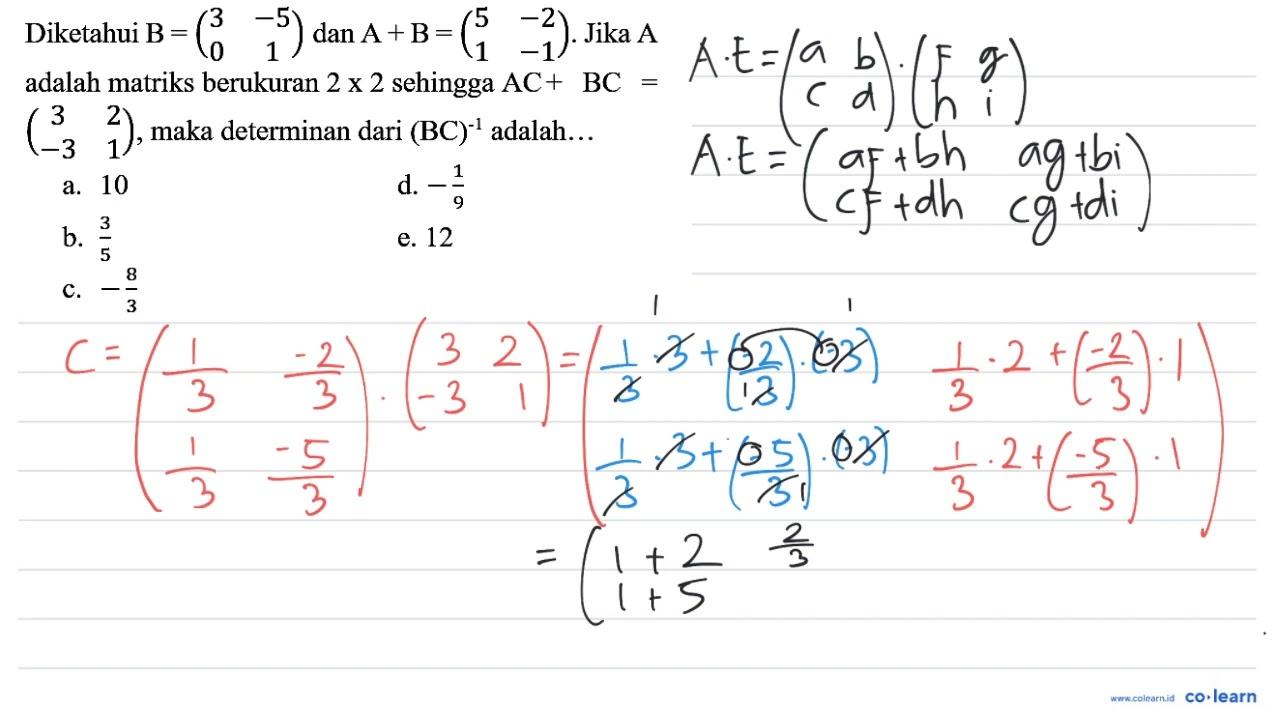 Diketahui B = (3 −5 0 1) dan A + B = (5 −2 1 −1). Jika A
adalah matriks berukuran 2 x 2 sehingga AC+ BC =
(3 2 −3 1), maka determinan dari (BC)⁻¹ adalah…
a. 10
b. 3/5
c. −8/3
d. −1/9
e. 12
A.E = (a b c d) . (F g h i)
A.E = (aF + bh ag + bi cF + dh cg + di)
C = (1/3 -2/3 1/3 -5/3) . (3 2 -3 1) = (1/3 . 3 + (-2/3) . (-3) 1/3 . 2 + (-2/3) . 1 1/3 . 3 + (-5/3) . (-3) 1/3 . 2 + (-5/3) . 1)
= (1 + 2 2/3
1 + 5
www.colearn.id co·learn